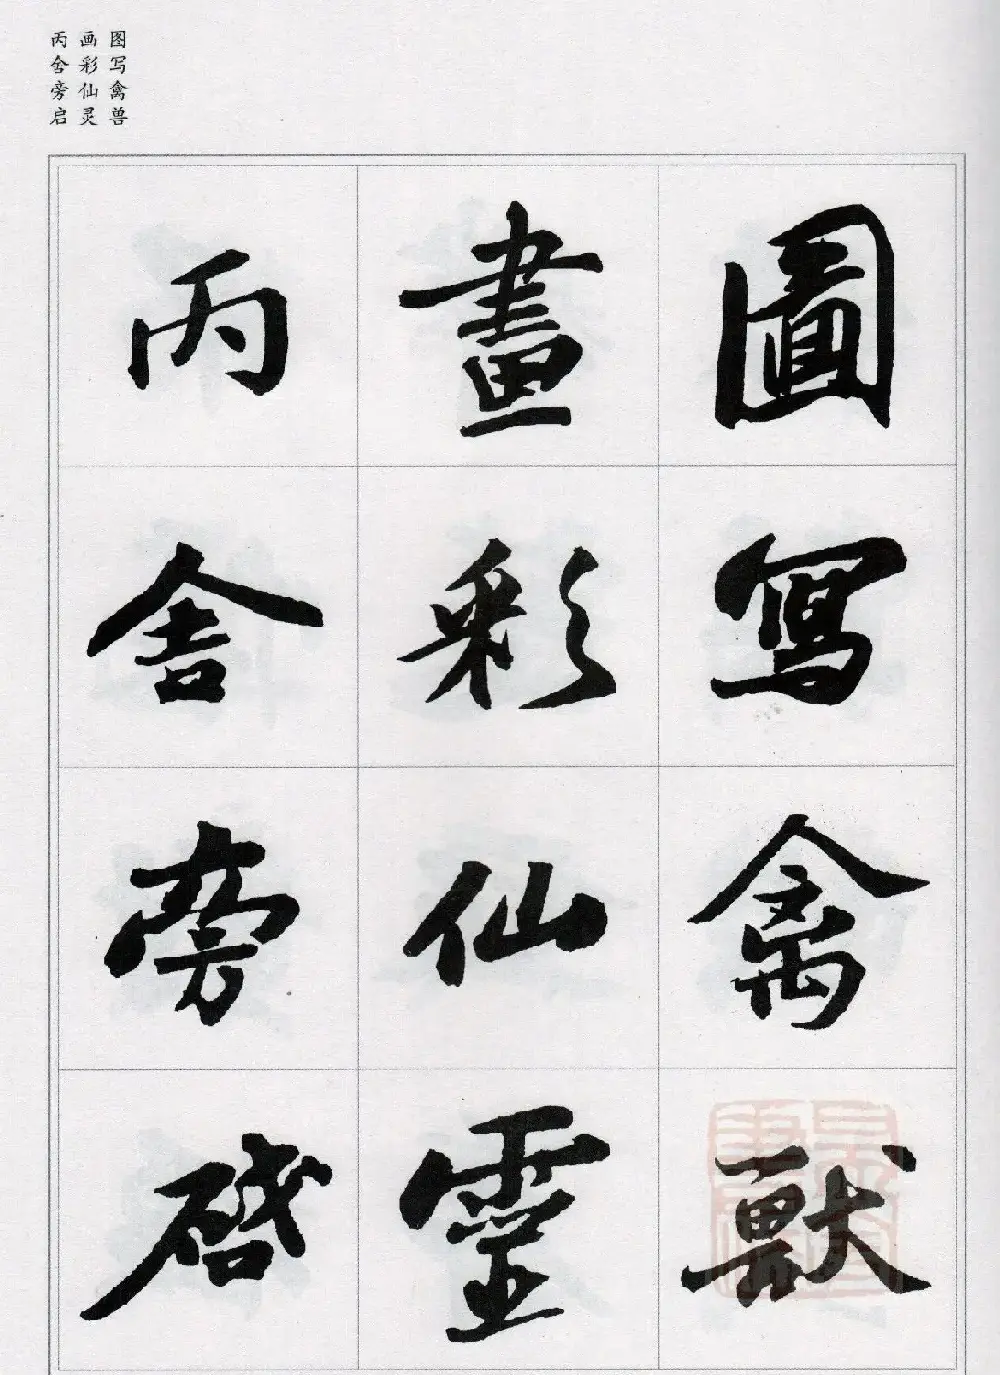 图写禽兽
画彩仙灵
丙舍旁启
圖寫禽獸
畫彩仙靈
丙舍旁啓